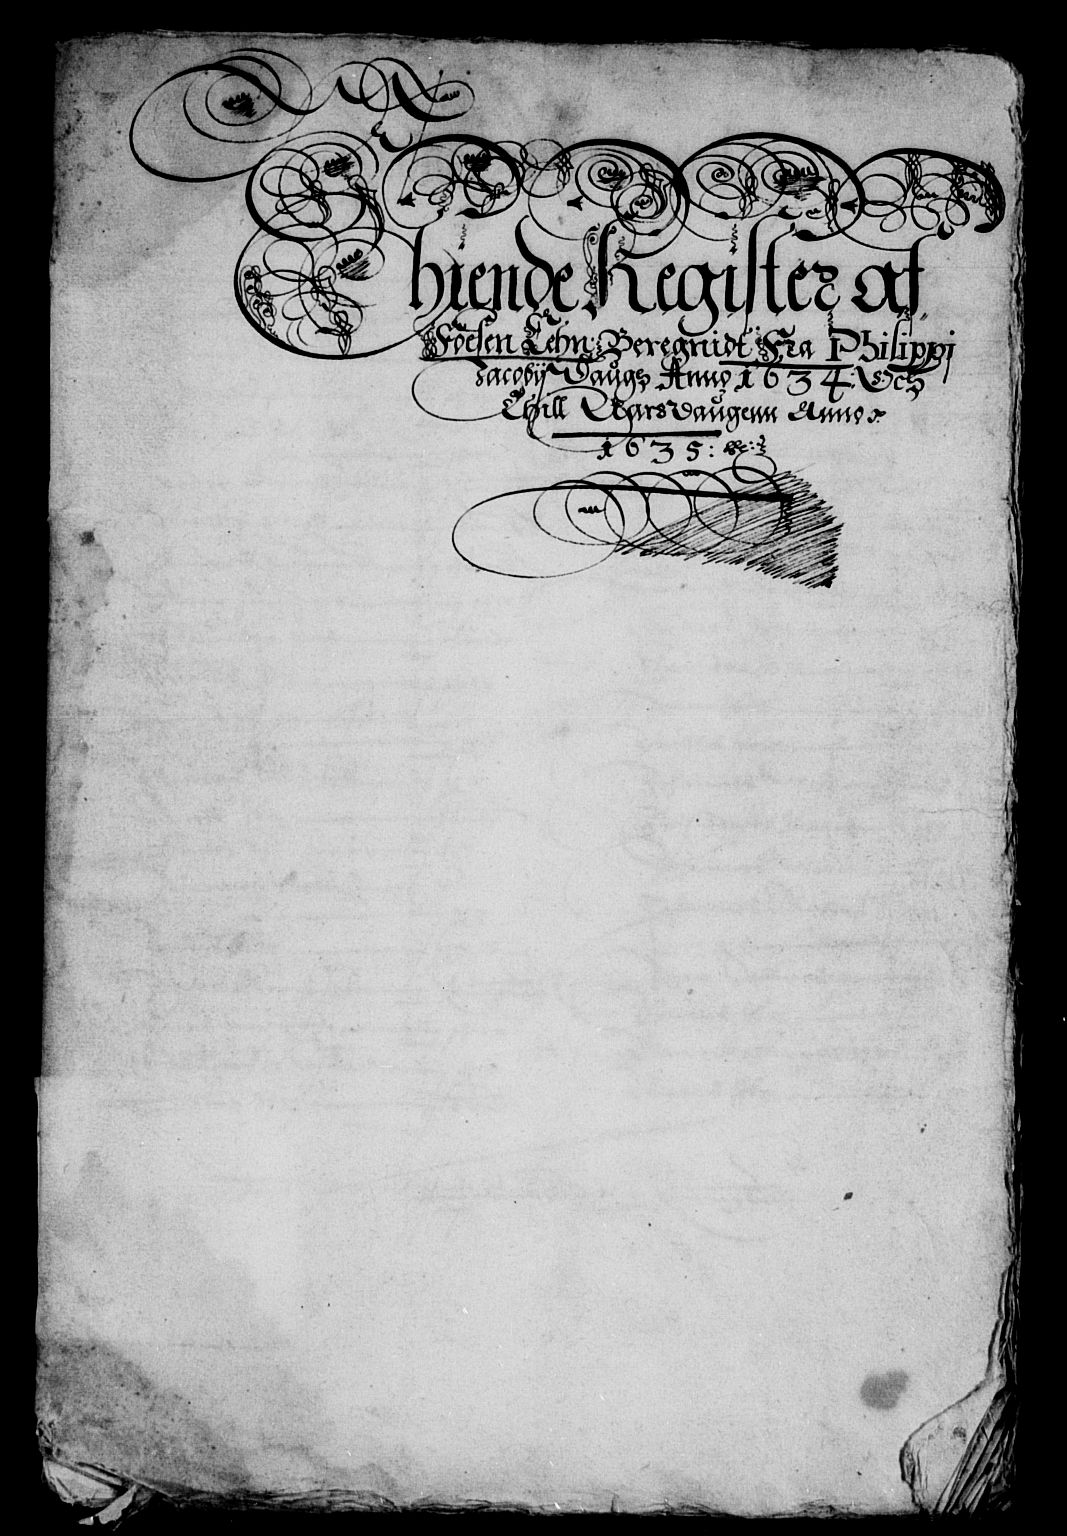 Thiende Register af
Foesen Lehn Beregnidt Fra Philippi
Jacobij Daugs Anno 1634: Och
Thill Aarsdaugenn Anno
1635: &c: